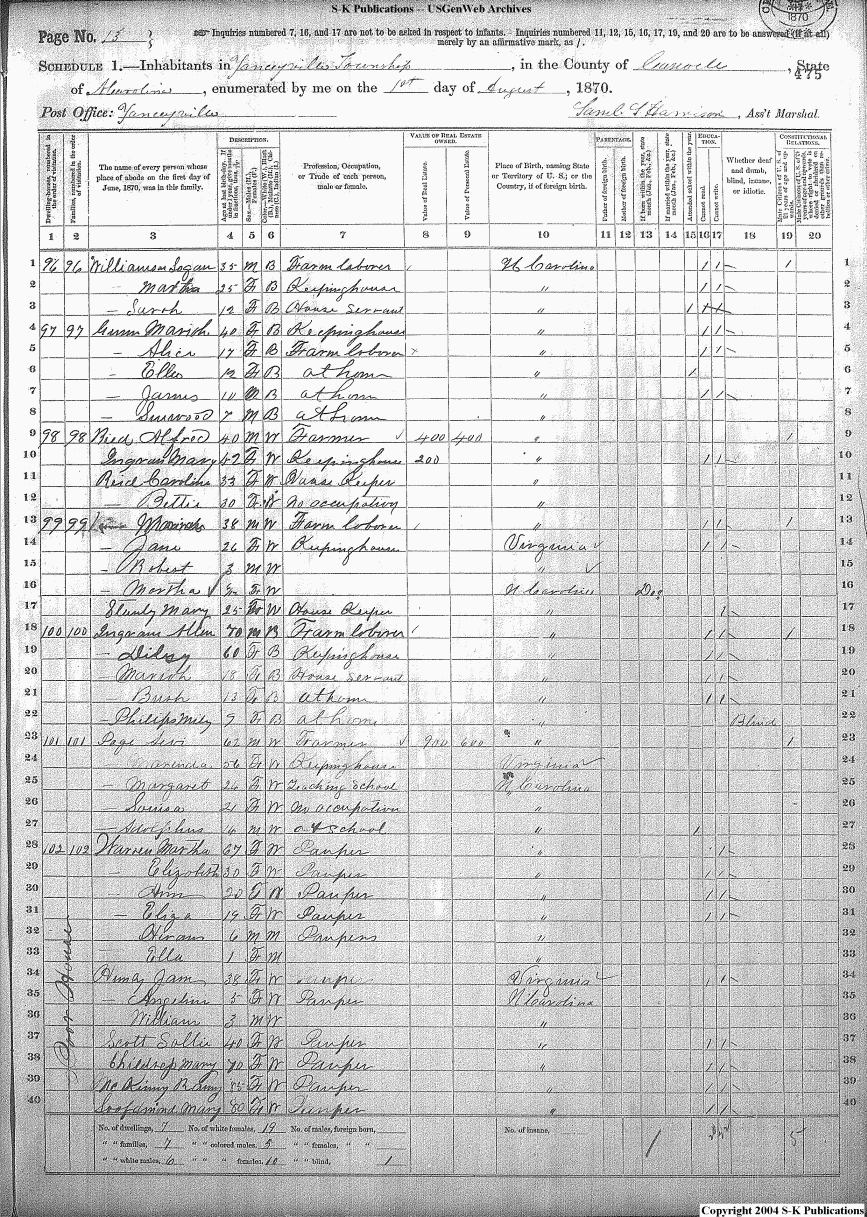 S-K Publications -- USGenWeb Archives
1870
Page No. 13
Inquiries numbered 7, 16, and 17 are not to be asked in respect to infants. Inquiries numbered 11, 12, 15, 16, 17, 19, and 20 are to be answered (if at all)
merely by an affirmative mark, as /.
SCHEDULE 1.—Inhabitants in Yanceyville Township, in the County of Caswell, State
475
of N Carolina, enumerated by me on the 1st day of August, 1870.
Post Office: Yanceyville Saml S Harrison, Ass't Marshal.
DESCRIPTION. VALUE OF REAL ESTATE OWNED. PARENTAGE. EDUCATION. CONSTITUTIONAL RELATIONS.
Dwelling-houses, numbered in the order of visitation. Families, numbered in the order of visitation. The name of every person whose place of abode on the first day of June, 1870, was in this family. Profession, Occupation, or Trade of each person, male or female. Value of Real Estate. Value of Personal Estate. Place of Birth, naming State or Territory of U. S.; or the Country, if of foreign birth. Father of foreign birth. Mother of foreign birth. Attended school within the year. Cannot read. Cannot write. Whether deaf and dumb, blind, insane, or idiotic.
1 2 3 4 5 6 7 8 9 10 11 12 13 14 15 16 17 18 19 20
1 96 96 Williamson Logan 35 M B Farm laborer N Carolina / / / 1
2 — Martha 25 F B Keeping house " / / 2
3 — Sarah 12 F B House Servant " 3
4 97 97 Gunn Mariah 40 F B Keeping house " / / 4
5 — Alice 17 F B Farm laborer " / / 5
6 — Ellen 12 F B at home " / 6
7 — James 10 M B at home " / / 7
8 — 7 M B at home " 8
9 98 98 Reid Alfred 40 M W Farmer 400 400 " / 9
10 Ingram Mary 47 F W Keeping house 200 " / / 10
11 Reid Carolina 33 F W House Keeper " 11
12 — Bettie 30 F W No occupation " 12
13 99 99 38 M W Farm laborer " / / / 13
14 — Jane 26 F W Keeping house Virginia / / 14
15 — Robert 3 M W " 15
16 — Martha F W N Carolina Dec 16
17 Stanly Mary 25 F W House Keeper " / 17
18 100 100 Ingram Allen 70 M B Farm laborer " / / / 18
19 — Dilsy 60 F B Keeping house " / / 19
20 — Mariah 18 F B House Servant " / / 20
21 Bush 13 F B at home " / / 21
22 — Philips Mily 9 F B at home " Blind 22
23 101 101 Page Levi 62 M W Farmer 900 600 " / 23
24 56 F W Keeping house Virginia 24
25 — Margaret 26 F W Teaching School N Carolina 25
26 — Louisa 21 F W No occupation " 26
27 — Adolphus 16 M W at School " / 27
28 102 102 Warren Martha 67 F W Pauper " / 28
29 — Elizabeth 30 F W Pauper " / / 29
30 — Ann 20 F W Pauper " / / 30
31 — Eliza 19 F W Pauper " / / 31
32 Hiram 6 M M Paupers " 32
33 Ella 1 F M " 33
34 38 F W Pauper Virginia / / 34
35 — Angeline 5 F W Pauper N Carolina 35
36 William 3 M W " 36
37 Scott Sallie 40 F W Pauper " / / 37
38 Childress Mary 70 F W Pauper " / / 38
39 Mc Kinny 85 F W Pauper " / / 39
40 Mary 80 F W Pauper " / / 40
Poor House
No. of dwellings, 7 No. of white females, 19 No. of males, foreign born, No. of insane,
" " families, 7 " " colored males, 5 " " females, " "
" " white males, 6 " " " females, 10 " " blind, 1
1 5
Copyright 2004 S-K Publications